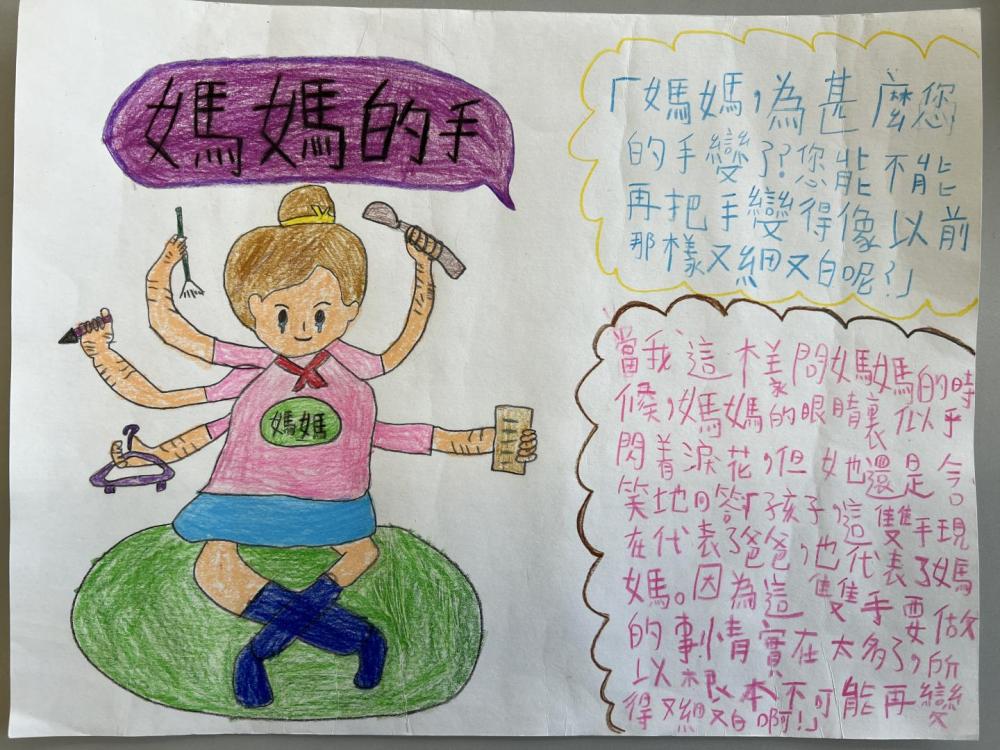 媽媽的手
媽媽
「媽媽，為甚麼您
的手變了？您能不能
再把手變得像以前
那樣又細又白呢？」
當我這樣問媽媽的時
候，媽媽的眼睛裏似乎
閃着淚花，但她還是含
笑地回答「孩子，這雙手現
在代表了爸爸，也代表了媽
媽。因為這雙手要做
的事情實在太多了，所
以根本不可能再變
得又細又白啊！」